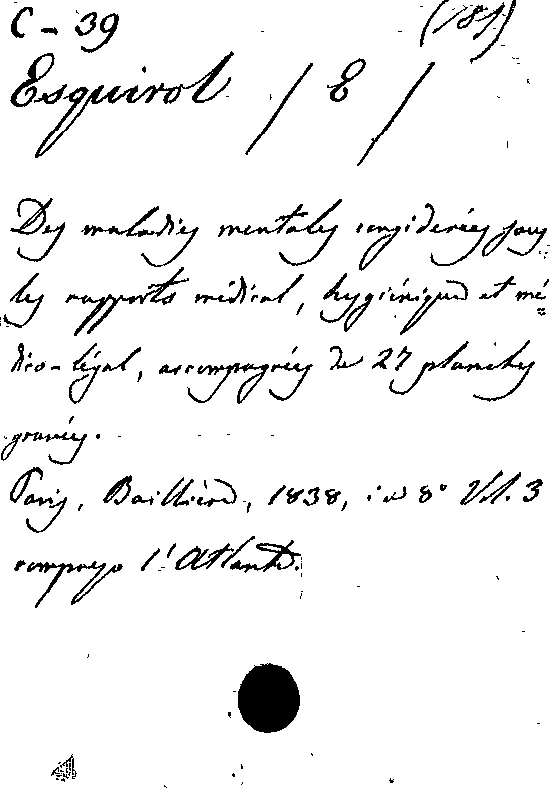 C - 39 (181)
Esquirol / E /
Des maladies mentales considerées sous
les rapports médical, hygiénique et mé=
dico-légal, accompagnées de 27 planches
gravées.
Paris, Baillière, 1838, in 8° Vol. 3
compreso l'Atlante.